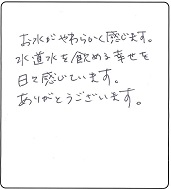 お水がやわらかく感じます。
水道水を飲める幸せを
日々感じています。
ありがとうございます。